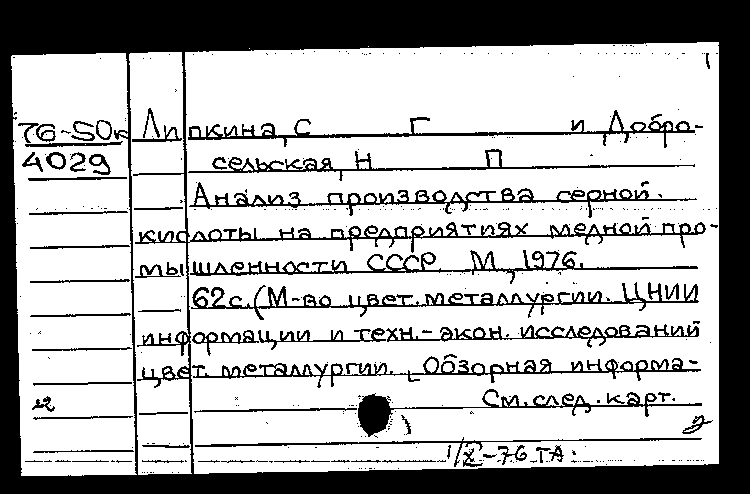 76-50к Липкина, С Г и Добро-
4029 сельская, Н П
Анализ производства серной
кислоты на предприятиях медной про-
мышленности СССР. М., 1976.
62 с. (М-во цвет. металлургии. ЦНИИ
информации и техн.-экон. исследований
цвет. металлургии. Обзорная информа-
См. след. карт.
1/X-76 ТА.